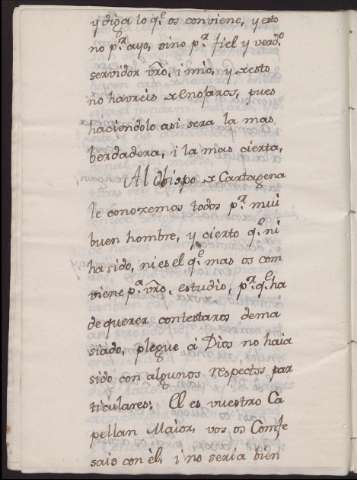 y diga lo q.e os conviene, y esto
no p.r ayo, sino p.r fiel y verd.o
servidor vr̃o, i mio, y de esto
no havreis de enojaros, pues
haciendolo asi sera la mas
berdadera, i la mas cierta,
Al obispo de Cartagena
le conozemos todos p.r mui
buen hombre, y cierto q.e ni
ha sido, ni es el q.e mas os com
viene p.a vr̃o, estudio, p.r q.e ha
de querer contestaros dema
siado, plegue á Dios no haia
sido con algunos respectos par
ticulares; El es vuestro Ca
pellan Maior, vos os Comfe
sais con èl, i no seria bien